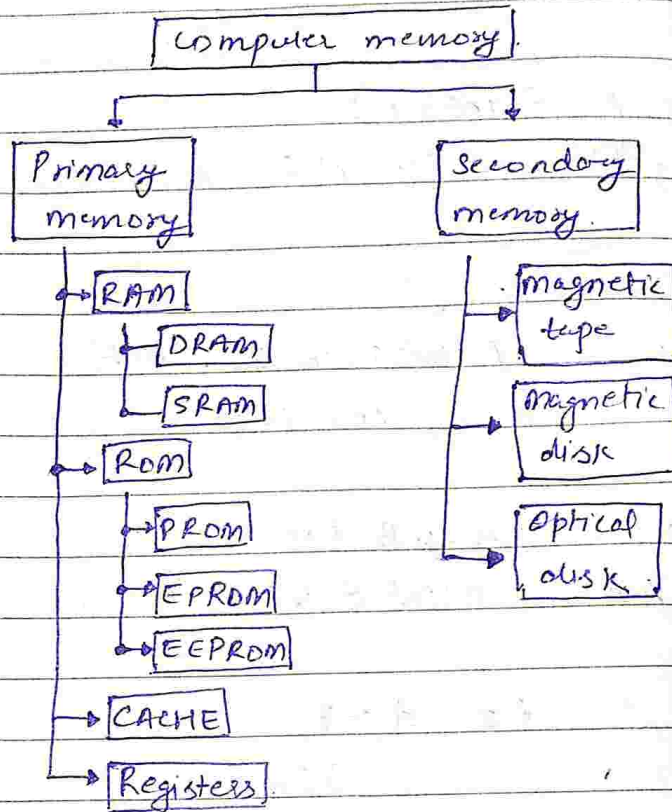 Computer memory.
Primary
memory
RAM
DRAM
SRAM
ROM
PROM
EPROM
EEPROM
CACHE
Registers
Secondary
memory.
magnetic
tape
magnetic
disk
Optical
disk.